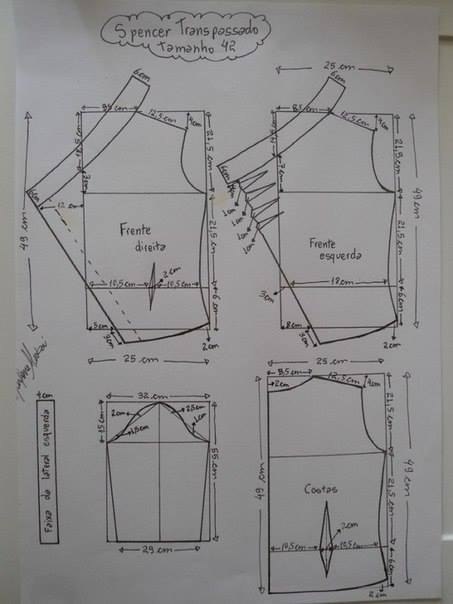 Spencer Transpassado
tamanho 42
6cm
8,5 cm
12,5 cm
4cm
21,5 cm
49 cm
6cm
12 cm
Frente
direita
21,5cm
2cm
10,5cm
10,5cm
6cm
8cm
3cm
2cm
25 cm
25 cm
6cm
8,5cm
12,5cm
4cm
21,5 cm
49 cm
7cm
Frente
esquerda
21,5cm
18cm
3cm
6cm
8cm
3cm
2cm
25 cm
4cm
Faixa da lateral esquerda
32 cm
15 cm
2cm
2,5cm
1,5cm
55 cm
29 cm
8,5cm
2cm
12,5cm
4cm
21,5 cm
49 cm
49 cm
Costas
21,5 cm
2cm
10,5cm
10,5cm
6cm
2cm